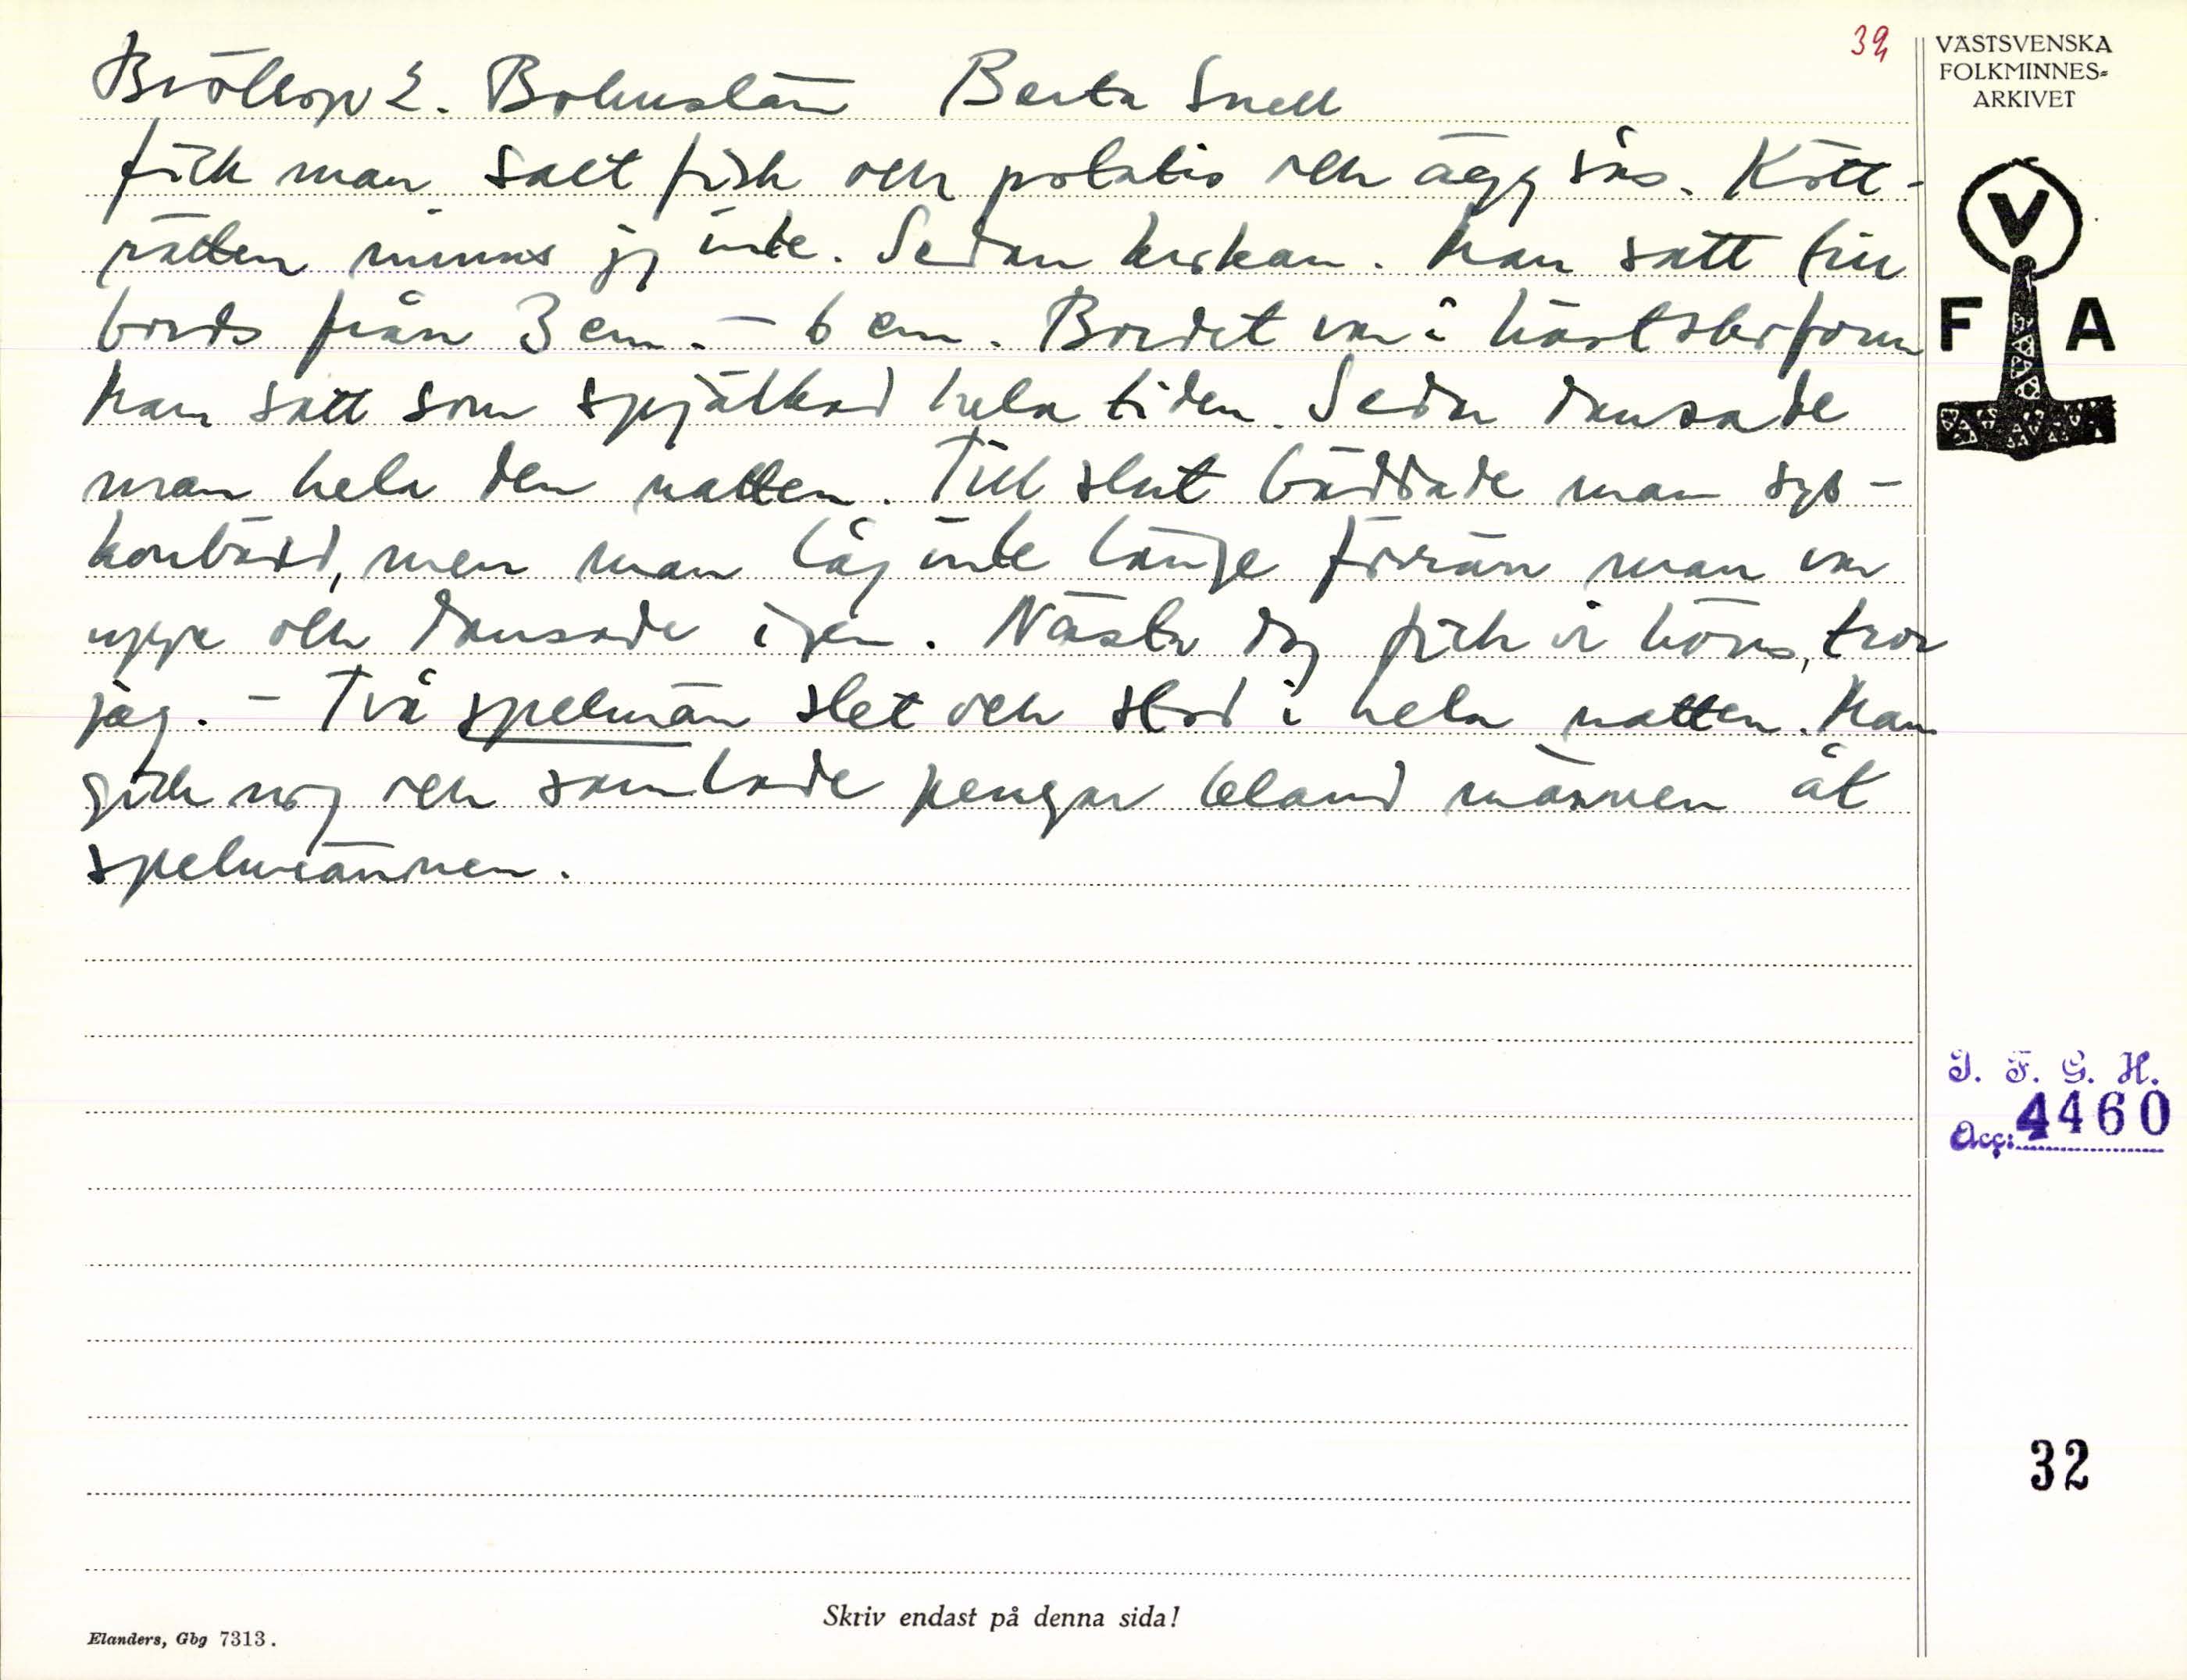 Bröllop 2. Bohuslän Berta Snell
fick man salt fisk och potatis och äggsås. Kött-
rätten minns jag inte. Sedan kirkan. Man satt till
bords från 3 em. - 6 em. Bordet var i hästskoform
Man satt som spjälkad hela tiden. Sedan dansade
man hela den natten. Till slut bäddade man sys-
konbädd, men man låg inte länge förrän man var
uppe och dansade igen. Nästa dag fick vi höns, tror
jag. - Två spelmän slet och stod i hela natten. Man
gick nog och samlade pengar bland männen åt
spelmännen.
32
VÄSTSVENSKA
FOLKMINNES-
ARKIVET
V
F A
I. F. G. H.
Acc: 4460
32
Skriv endast på denna sida!
Elanders, Gbg 7313.